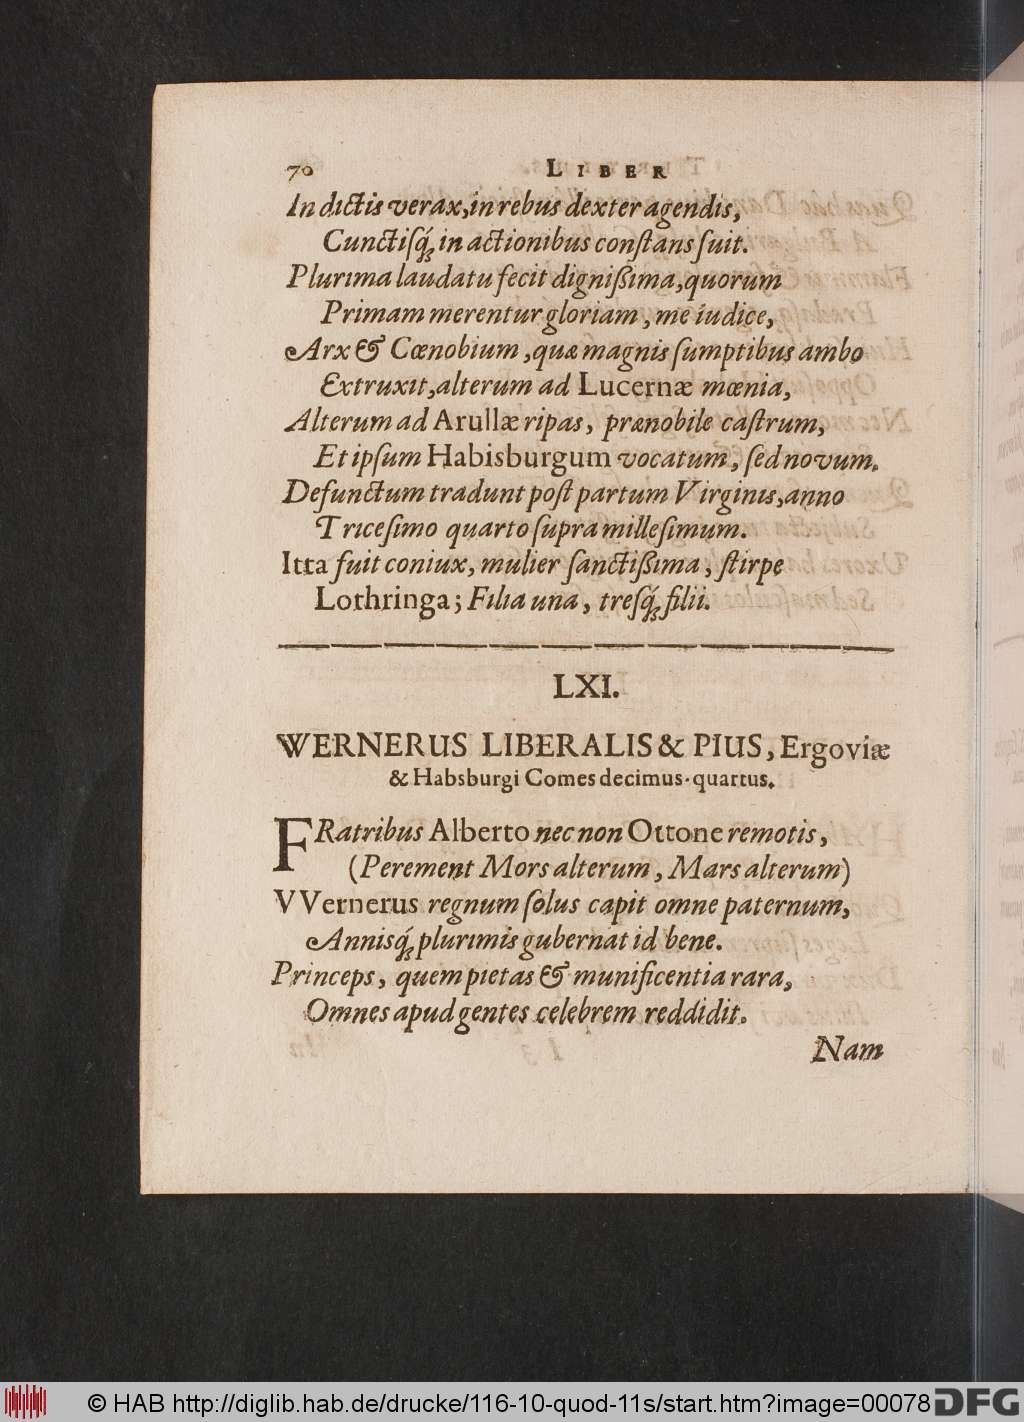 70 LIBER
In dictis verax, in rebus dexter agendis,
Cunctiſq́ꝫ in actionibus conſtans fuit.
Plurima laudatu fecit digniſſima, quorum
Primam merentur gloriam, me iudice,
Arx & Cœnobium, quæ magnis ſumptibus ambo
Extruxit, alterum ad Lucernæ mœnia,
Alterum ad Arullæ ripas, prænobile caſtrum,
Et ipſum Habisburgum vocatum, ſed novum.
Defunctum tradunt poſt partum Virginis, anno
Triceſimo quarto ſupra milleſimum.
Itta fuit coniux, mulier ſanctiſſima, ſtirpe
Lothringa; Filia una, treſq́ꝫ filii.
LXI.
WERNERUS LIBERALIS & PIUS, Ergoviæ
& Habsburgi Comes decimus-quartus.
FRatribus Alberto nec non Ottone remotis,
(Perement Mors alterum, Mars alterum)
VVernerus regnum ſolus capit omne paternum,
Annisq́ꝫ plurimis gubernat id bene.
Princeps, quem pietas & munificentia rara,
Omnes apud gentes celebrem reddidit.
Nam
© HAB http://diglib.hab.de/drucke/116-10-quod-11s/start.htm?image=00078 DFG